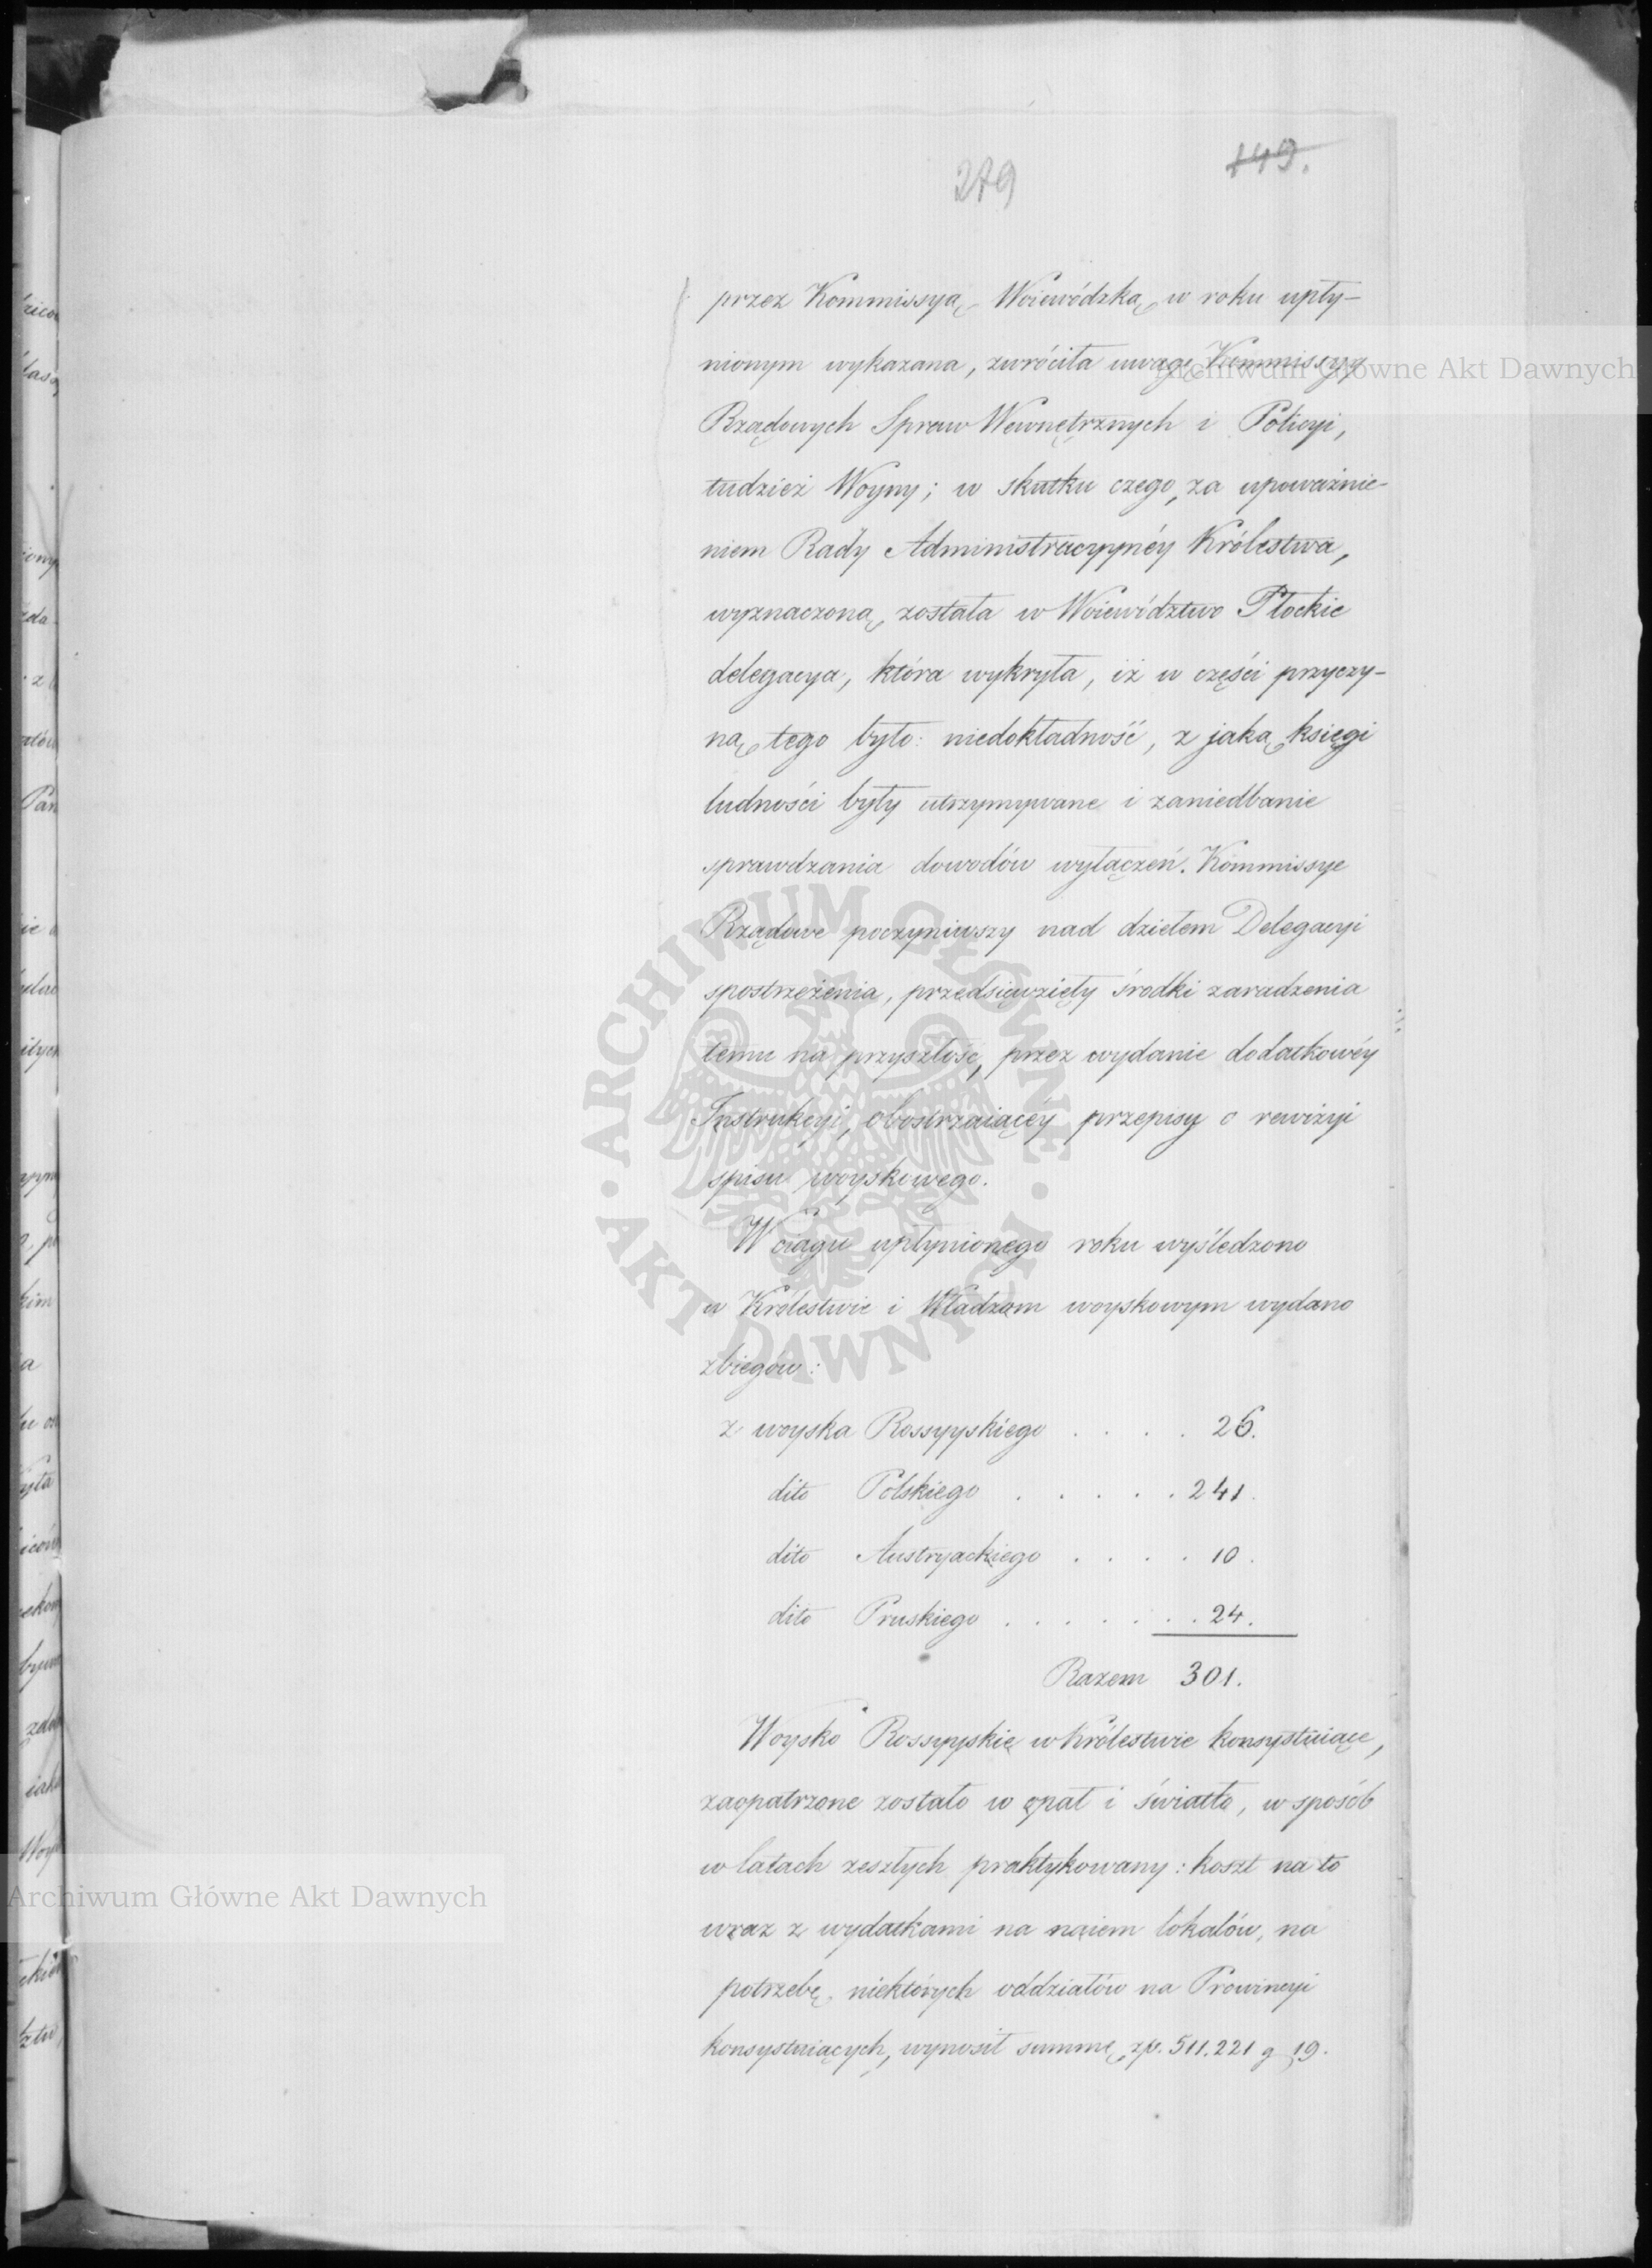 279
149.
przez Kommissyą Woiewódzką w roku upły-
nionym wykazana, zwróciła uwagę Kommissyy
Rządowych Spraw Wewnętrznych i Policyi,
tudzież Woyny; w skutku czego, za upoważnie-
niem Rady Administracyynéy Królestwa,
wyznaczoną została w Woiewództwo Płockie
delegacya, która wykryła, iż w części przyczy-
ną tego było: niedokładność, z jaką księgi
ludności były utrzymywane i zaniedbanie
sprawdzania dowodów wyłączeń. Kommissye
Rządowe poczyniwszy nad dziełem Delegacyi
spostrzeżenia, przedsięwzięły środki zaradzenia
temu na przyszłość, przez wydanie dodatkowéy
Instrukcyi, obostrzaiącéy przepisy o rewizyi
spisu woyskowego.
W ciągu upłynionego roku wyśledzono
w Królestwie i Władzom woyskowym wydano
zbiegów:
z woyska Rossyyskiego . . . . 26.
dito Polskiego . . . . . 241.
dito Austryackiego . . . . 10.
dito Pruskiego . . . . . . 24.
Razem 301.
Woysko Rossyyskie w Królestwie konsystuiące,
zaopatrzone zostało w opał i światło, w sposób
w latach zeszłych praktykowany: koszt na to
wraz z wydatkami na naiem lokalów, na
potrzebę niektórych oddziałów na Prowincyi
konsystuiących, wynosił summę zp. 511.221 g 19.
Archiwum Główne Akt Dawnych
Archiwum Główne Akt Dawnych
ARCHIWUM GŁÓWNE AKT DAWNYCH